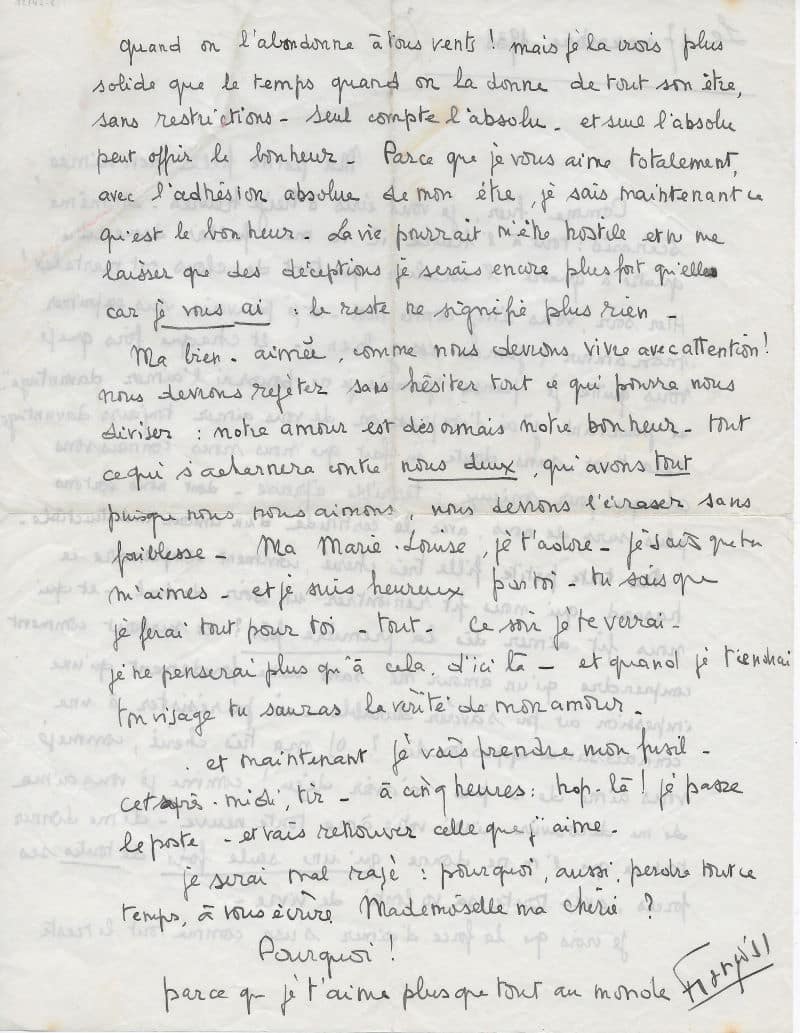 quand on l'abandonne à tous vents ! mais je la crois plus
solide que le temps quand on la donne de tout son être,
sans restrictions - seul compte l'absolu - et seul l'absolu
peut offrir le bonheur - Parce que je vous aime totalement,
avec l'adhésion absolue de mon être, je sais maintenant ce
qu'est le bonheur - La vie pourrait m'être hostile et ne me
laisser que des déceptions je serais encore plus fort qu'elle
car je vous ai : le reste ne signifie plus rien -
Ma bien-aimée, comme nous devrons vivre avec attention !
nous devrons rejeter sans hésiter tout ce qui pourra nous
diviser : notre amour est désormais notre bonheur - tout
ce qui s'acharnera contre nous deux, qui avons tout
puisque nous nous aimons, nous devrons l'écraser sans
faiblesse - Ma Marie-Louise, je t'adore - je sais que tu
m'aimes - et je suis heureux par toi - tu sais que
je ferai tout pour toi - tout - ce soir je te verrai -
je ne penserai plus qu'à cela, d'ici là - et quand je tiendrai
ton visage tu sauras la vérité de mon amour -
. et maintenant je vais prendre mon fusil -
cet après-midi, tir - à cinq heures : hop-là ! je passe
le poste - et vais retrouver celle que j'aime -
je serai mal rasé : pourquoi, aussi, perdre tout ce
temps, à vous écrire Mademoiselle ma chérie ?
Pourquoi !
parce que je t'aime plus que tout au monde
François